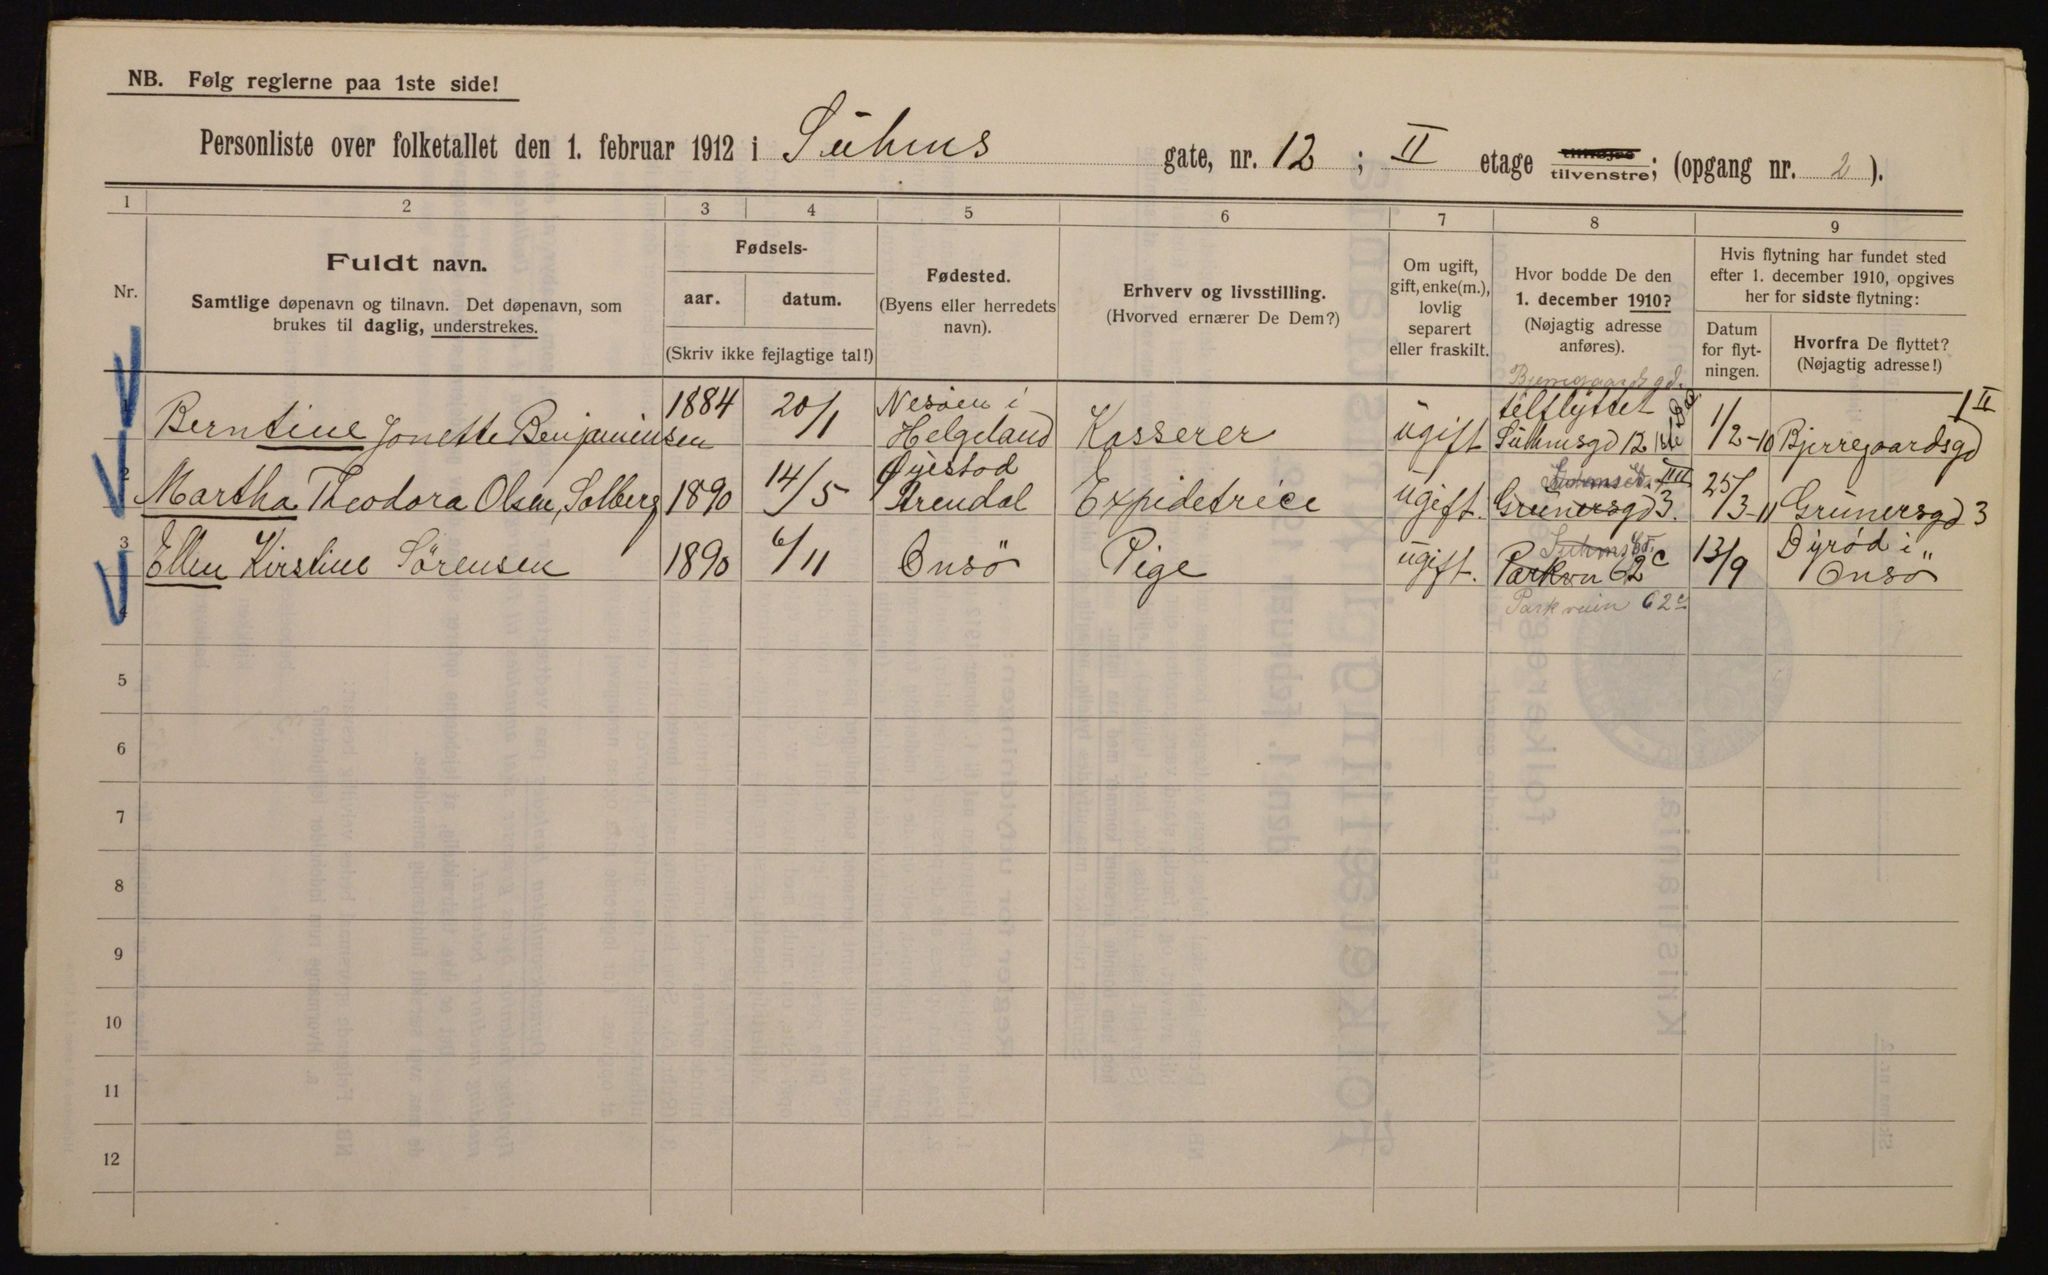 NB. Følg reglerne paa 1ste side!
Personliste over folketallet den 1. februar 1912 i Sühms gate, nr. 12 ; II etage tilhøjre tilvenstre; (opgang nr. 2 ).
1 2 3 4 5 6 7 8 9
Nr.
Fuldt navn.
Samtlige døpenavn og tilnavn. Det døpenavn, som
brukes til daglig, understrekes.
Fødsels-
aar. datum.
(Skriv ikke fejlagtige tal!)
Fødested.
(Byens eller herredets
navn).
Erhverv og livsstilling.
(Hvorved ernærer De Dem?)
Om ugift,
gift, enke(m.),
lovlig
separert
eller fraskilt.
Hvor bodde De den
1. december 1910?
(Nøjagtig adresse
anføres).
Hvis flytning har fundet sted
efter 1. december 1910, opgives
her for sidste flytning:
Datum
for flyt-
ningen.
Hvorfra De flyttet?
(Nøjagtig adresse!)
Bjerregaardsgd.
Berntine Jonette Benjaminsen 1884 20/1 Nesøen i Helgeland Kasserer ugift tilflyttet Sühmsgd 12 1/2-10 Bjerregaardsgd 1 II
2 Martha Theodora Olsen, Solberg 1890 14/5 Øyestad Arendal Expidetrice ugift. Grünersgd 3. 25/3-11 Grünersgd 3
3 Ellen Kirstine Sørensen 1890 6/11 Onsö Pige ugift. Parkvn 62c 13/9 Dyrød i Onsö
Parkveien 62c
4
5
6
7
8
9
10
11
12